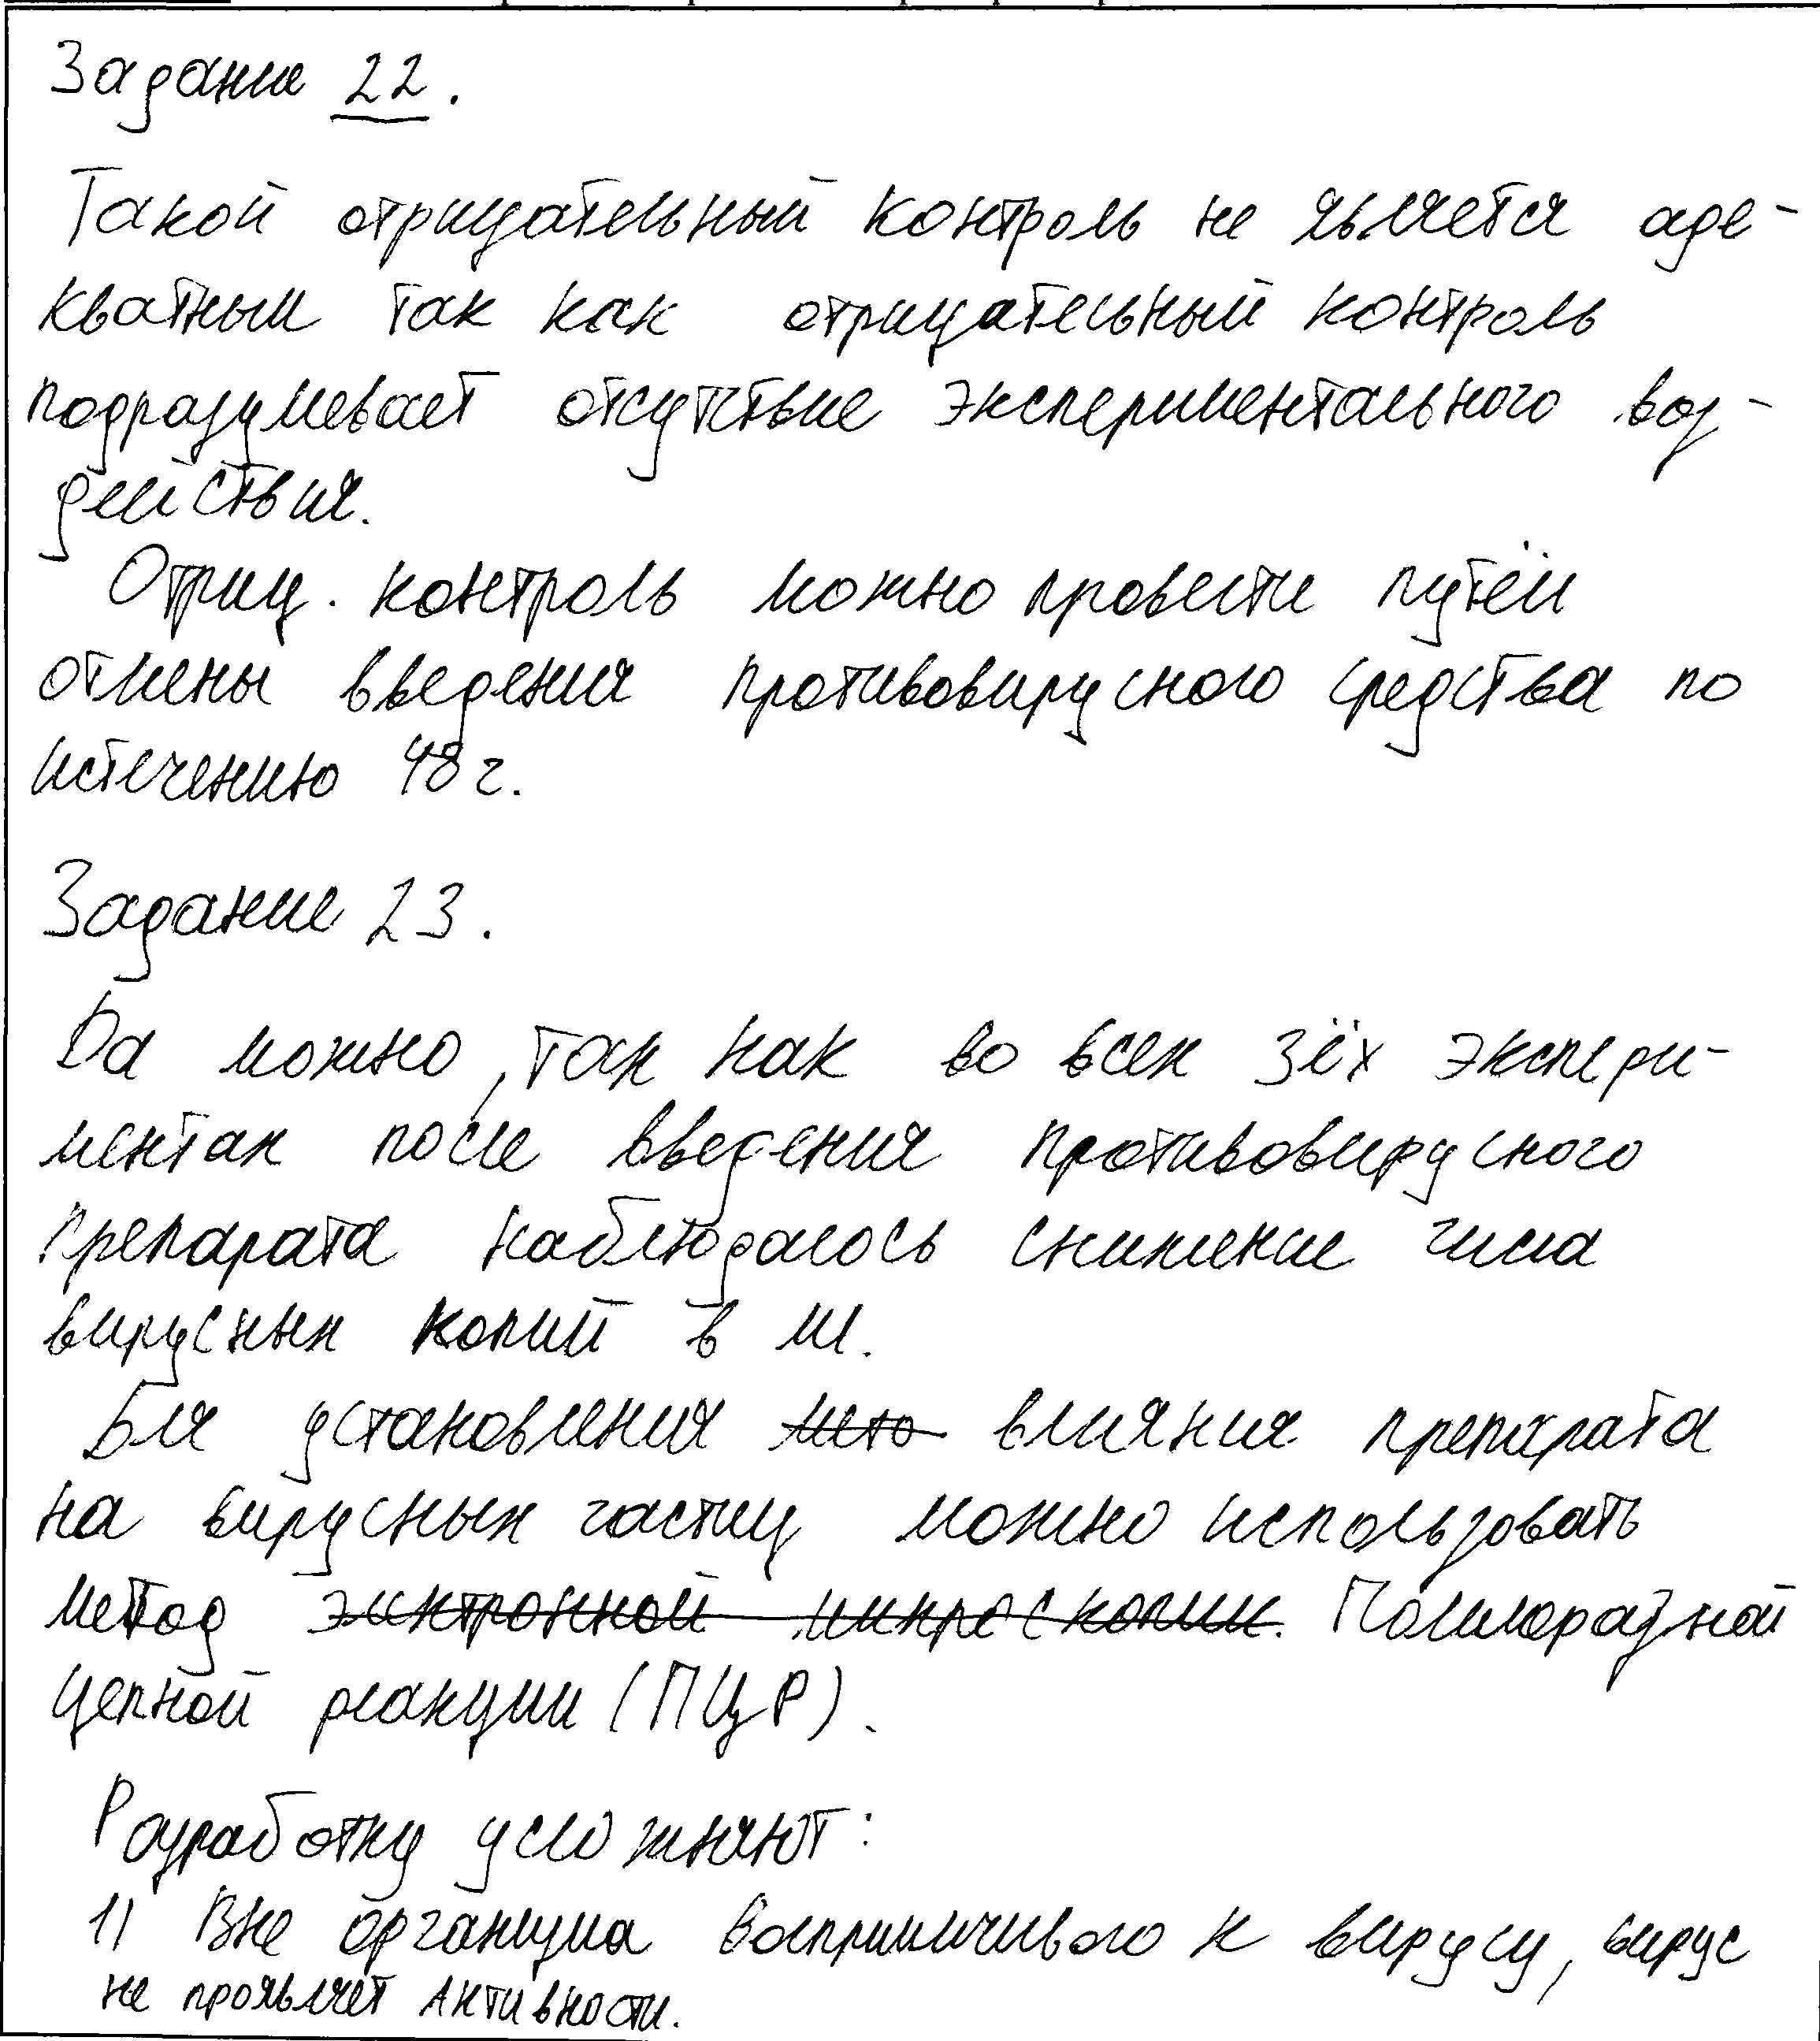 Задание 22.
Такой отрицательный контроль не является аде-
кватным так как отрицательный контроль
подразумевает отсутствие экспериментального воз-
действия.
Отриц. контроль можно провести путём
отмены введения противовирусного средства по
истечению 48 г.
Задание 23.
Да можно, так как во всех 3ёх экспери-
ментах после введения противовирусного
препарата наблюдалось снижение числа
вирусных копий в мл.
Для установления влияния препарата
на вирусных частиц можно использовать
метод ~~электронной микроскопии.~~ Полимеразной
цепной реакции (ПЦР).
Разработку усложняют:
1) Вне организма восприимчивого к вирусу, вирус
не проявляет активности.